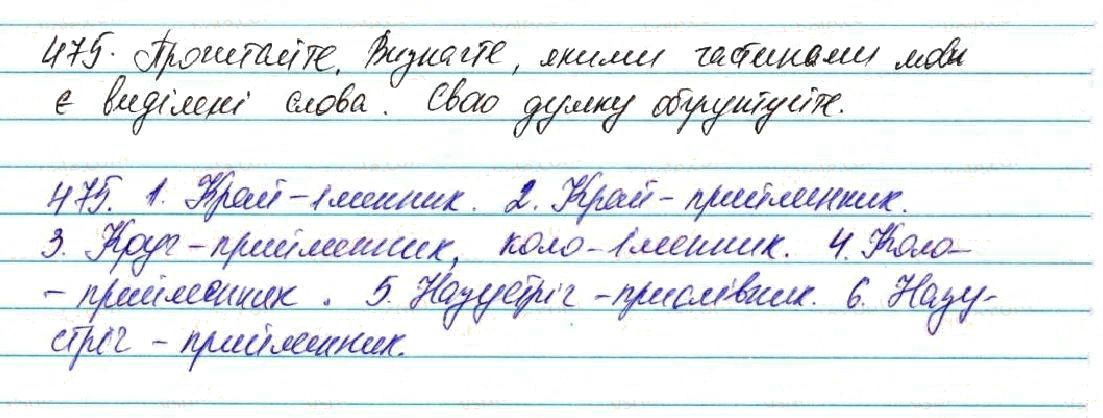 475. Прочитайте. Визначте, якими частинами мови
є виділені слова. Свою думку обґрунтуйте.
475. 1. Край – іменник. 2. Край – прийменник.
3. Круг – прийменник, коло – іменник. 4. Коло –
– прийменник. 5. Назустріч – прислівник. 6. Назу-
стріч – прийменник.